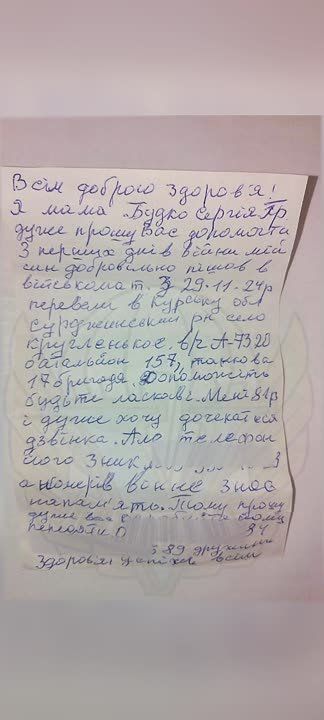 Всім доброго здоров'я!
Я мама Будко Сергія Гр
дуже прошу Вас допомогти
З перших днів війни мій
син добровільно пішов в
військомат. З 29-11-24р
перевели в Курську обл
Суджженський рн село
Кругленькое, в/ч А-7320
батальйон 157, танкова
17 бригада. Допоможіть
будьте ласкові. Мені 81р
і дуже хочу дочекатися
дзвінка. Ало телефон
його зник
а номерів він не знає
напам'ять. Тому прошу
дуже вас йому
передати
89 дружини
Здоров'я і успіхів всім